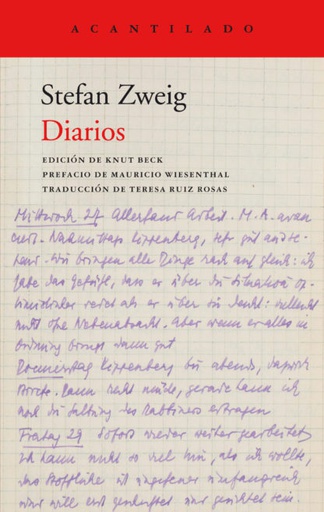 ACANTILADO
Stefan Zweig
Diarios
EDICIÓN DE KNUT BECK
PREFACIO DE MAURICIO WIESENTHAL
TRADUCCIÓN DE TERESA RUIZ ROSAS
Mittwoch 27 Allerhand Arbeit. M. A.
Nachmittags Kippenberg, sehr gut
Wir bringen alle Dinge rasch auf gleich: ich
habe das Gefühl, dass er über die Situation
redet als er über sie denkt: vielleicht
nicht ohne Nebenabsicht. Aber wenn er alles in
Ordnung bringt dann gut
Donnerstag Kippenberg bis abends,
Briefe. Kann nicht müde, gerade kann ich
noch die Haltung des Rabbiners ertragen
Freitag 29 Sofort wieder weiter gearbeitet
Ich kann nicht so viel tun, als ich wollte,
das Stoffliche ist ungeheuer umfangreich
und will erst und gesichtet sein.